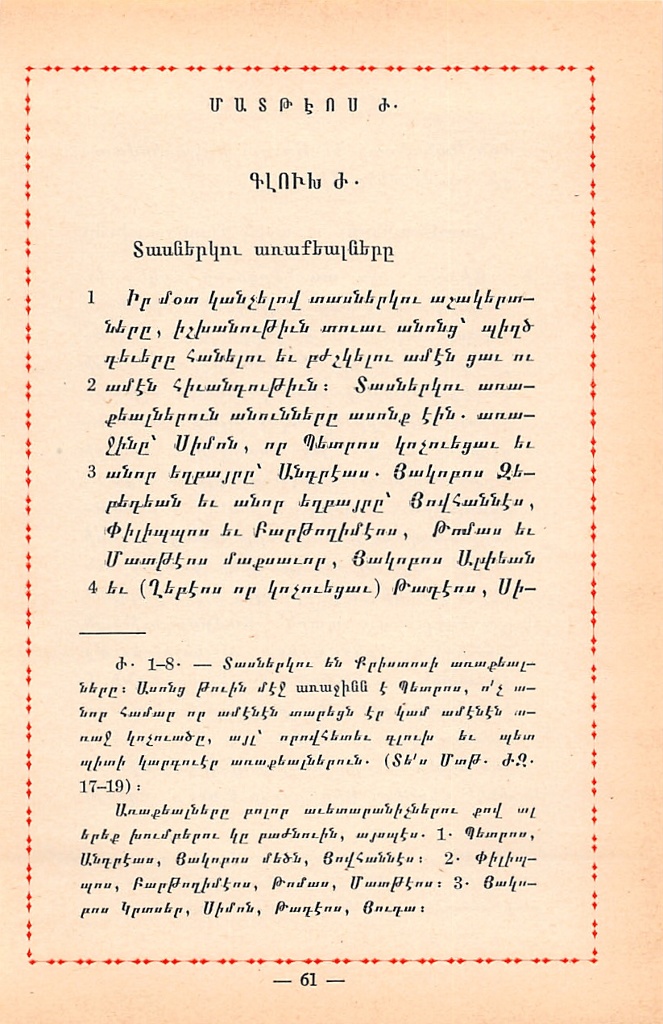 ՄԱՏԹԷՈՍ Ժ.
ԳԼՈՒԽ Ժ.
Տասներկու առաքեալները
1 Իր մօտ կանչելով տասներկու աշակերտ–
ները, իշխանութիւն տուաւ անոնց՝ պիղծ
դեւերը հանելու եւ բժշկելու ամէն ցաւ ու
2 ամէն հիւանդութիւն։ Տասներկու առա–
քեալներուն անունները ասոնք էին. առա–
ջինը՝ Սիմոն, որ Պետրոս կոչուեցաւ եւ
3 անոր եղբայրը՝ Անդրէաս. Յակոբոս Զե–
բեդեան եւ անոր եղբայրը՝ Յովհաննէս,
Փիլիպպոս եւ Բարթողիմէոս, Թոմաս եւ
Մատթէոս մաքսաւոր, Յակոբոս Ալփեան
4 եւ (Ղեբէոս որ կոչուեցաւ) Թադէոս, Սի–
Ժ. 1–8. — Տասներկու են Քրիստոսի առաքեալ–
ները։ Ասոնց թուին մէջ առաջինն է Պետրոս, ո՛չ ա–
նոր համար որ ամէնէն տարեցն էր կամ ամէնէն ա–
ռաջ կոչուածը, այլ՝ որովհետեւ գլուխ եւ պետ
պիտի կարգուէր առաքեալներուն. (Տե՛ս Մտթ. ԺԶ.
17–19)։
Առաքեալները բոլոր աւետարանիչներու քով ալ
երեք խումբերու կը բաժնուին, այսպէս. 1. Պետրոս,
Անդրէաս, Յակոբոս մեծն, Յովհաննէս։ 2. Փիլիպ–
պոս, Բարթողիմէոս, Թոմաս, Մատթէոս։ 3. Յակո–
բոս Կրտսեր, Սիմոն, Թադէոս, Յուդա։
— 61 —